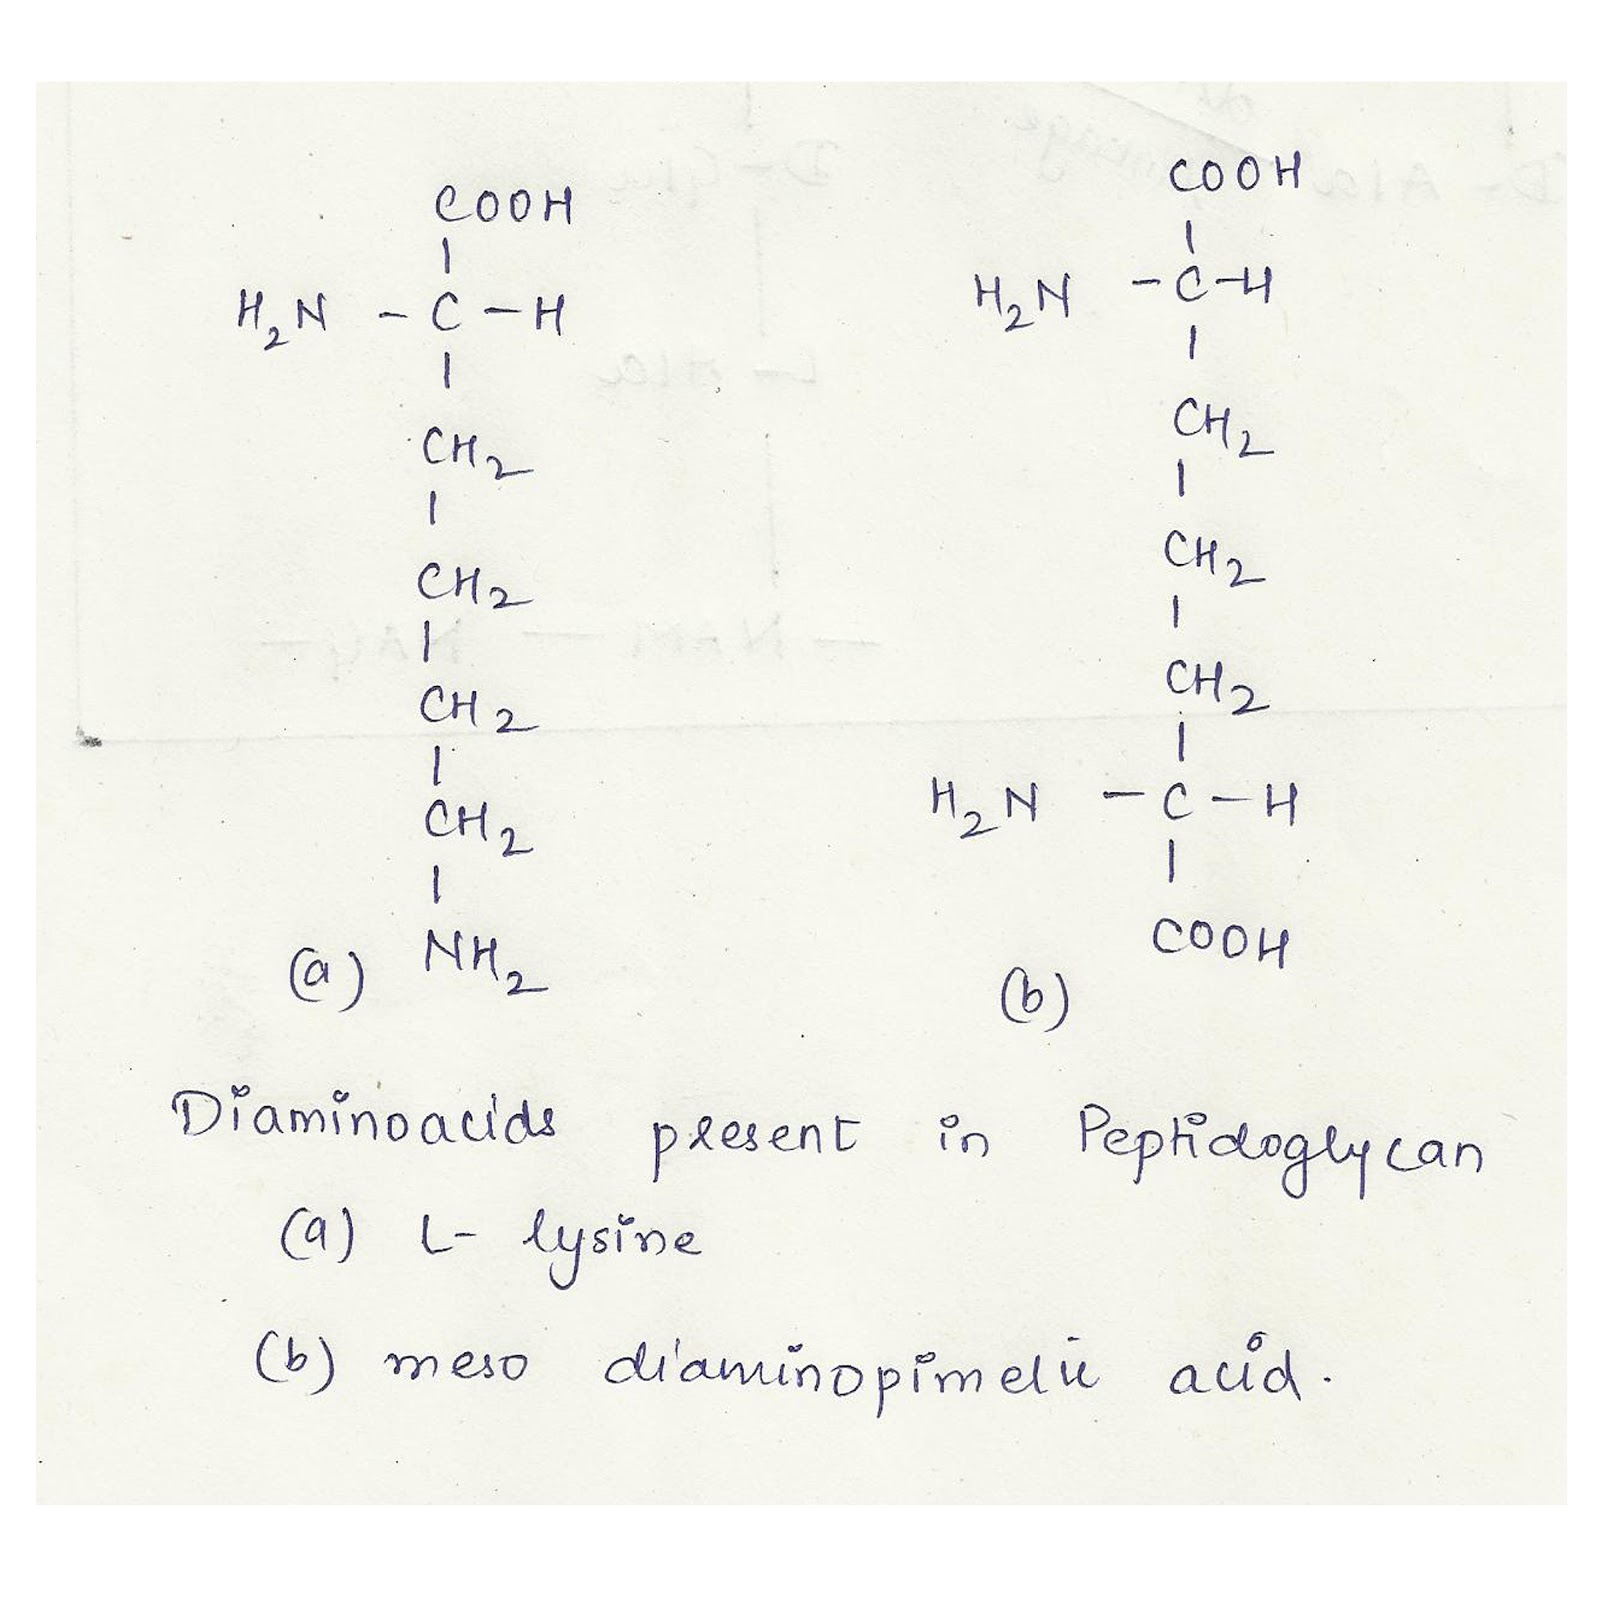 COOH
H2N - C - H
CH2
CH2
CH2
CH2
NH2
(a)
COOH
H2N - C - H
CH2
CH2
CH2
H2N - C - H
COOH
(b)
Diaminoacids present in Peptidoglycan
(a) L- lysine
(b) meso diaminopimelic acid.